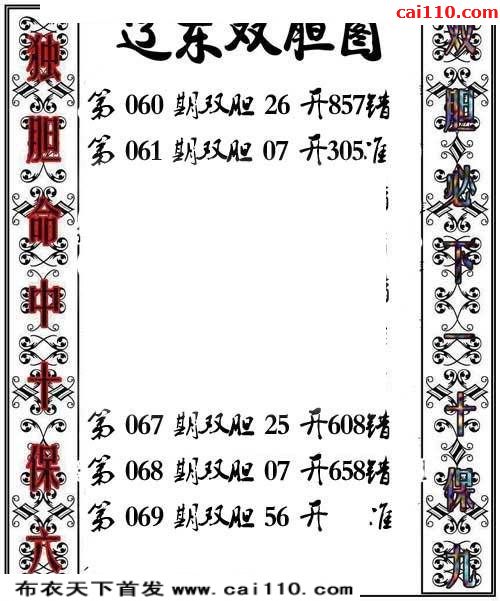 cai110.com
辽东双胆图
独胆命中十保六
双胆必下一十保九
第 060 期双胆 26 开857错
第 061 期双胆 07 开305准
第 067 期双胆 25 开608错
第 068 期双胆 07 开658错
第 069 期双胆 56 开 准
布衣天下首发 www.cai110.com